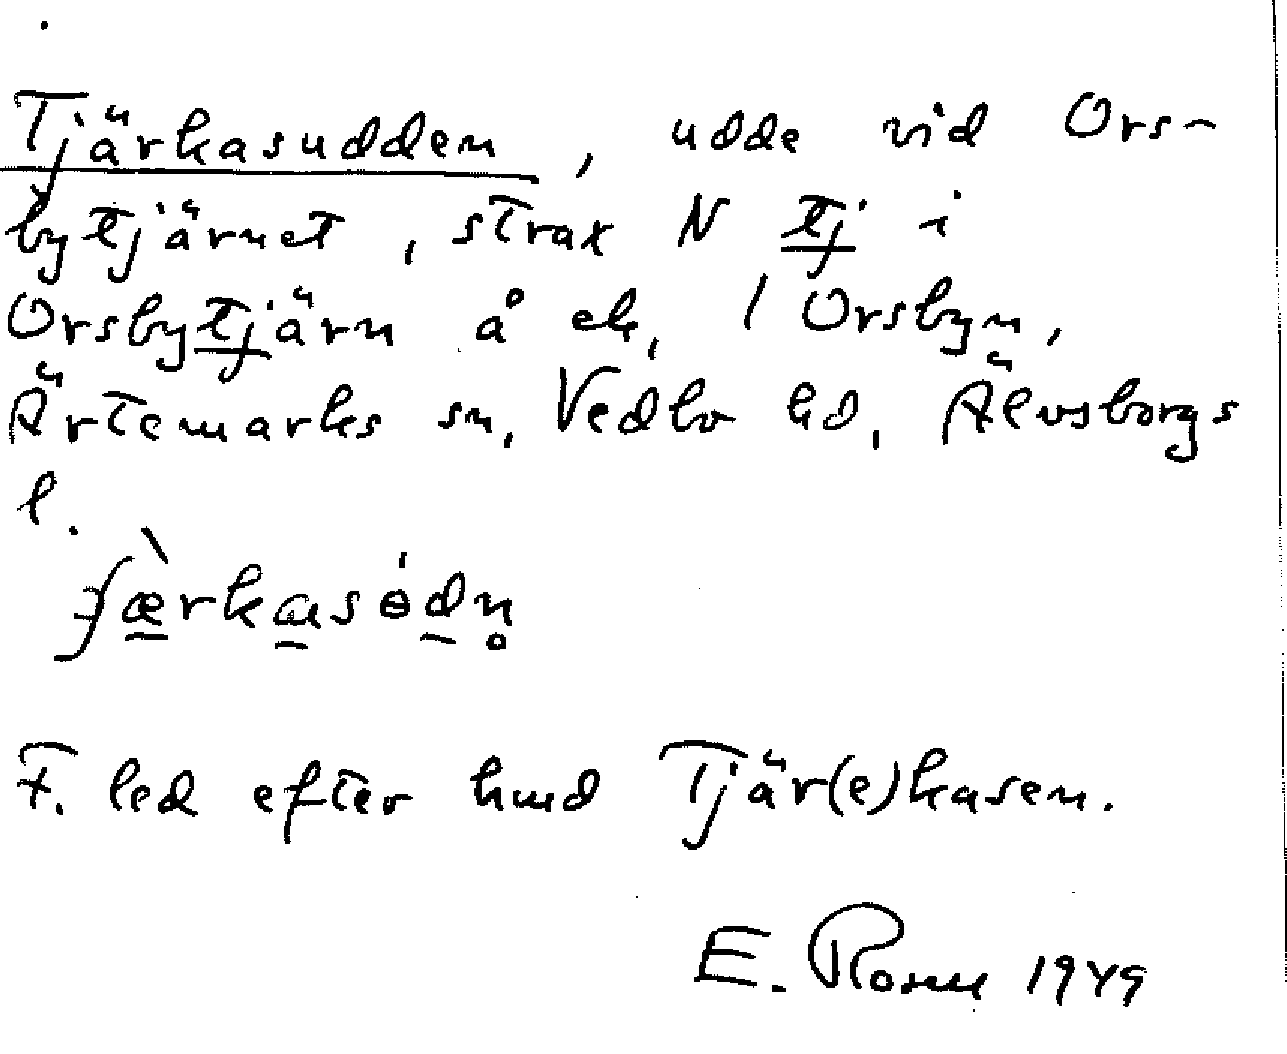 Tjärkasudden, udde vid Ors-
bytjärnet, strax N tj i
Orsbytjärn å ek, I Orsbyn,
Ärtemarks sn, Vedbo hd, Älvsborgs
l.
F. led efter hmd Tjär(e)kasen.
E. Rosell 1949